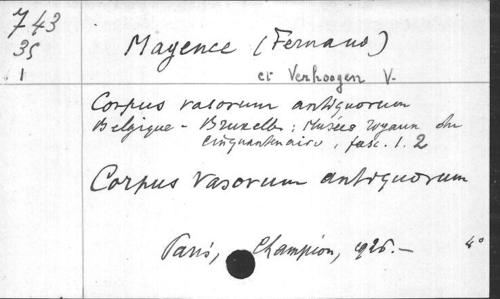 743
35
1
Mayence (Fernand)
et Verhoogen V.
Corpus vasorum antiquorum
Belgique - Bruxelles: Musées royaux du
cinquantenaire, fasc. 1. 2
Corpus vasorum antiquorum
Paris, Champion, 1926.—
4°